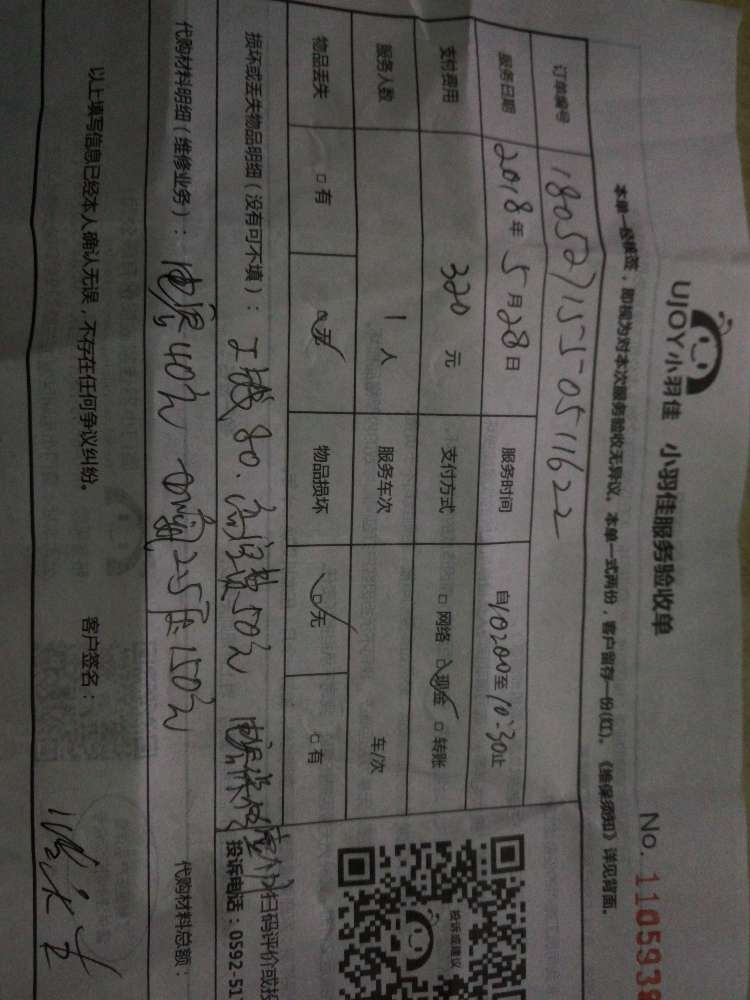 UJOY小羽佳 小羽佳服务验收单
No. 1105939
本单一经候签,即视为对本次服务验收无异议。本单一式两份,客户留存一份(红)。《维保须知》详见背面。
订单编号 180527155-0511622
服务日期 2018年5月28日 服务时间 自10:00至10:30止
支付费用 320元 支付方式 □网络 □现金 □转账
服务人数 1人 服务车次 车/次
物品丢失 □有 □无 物品损坏 □无 □有
损坏或丢失物品明细(没有可不填): 工钱80. 50元
代购材料明细(维修业务): 电容40元 2.5 150元
代购材料总额:
投诉或建议
扫码评价或投
投诉电话:0592-51
以上填写信息已经本人确认无误,不存在任何争议纠纷。 客户签名: